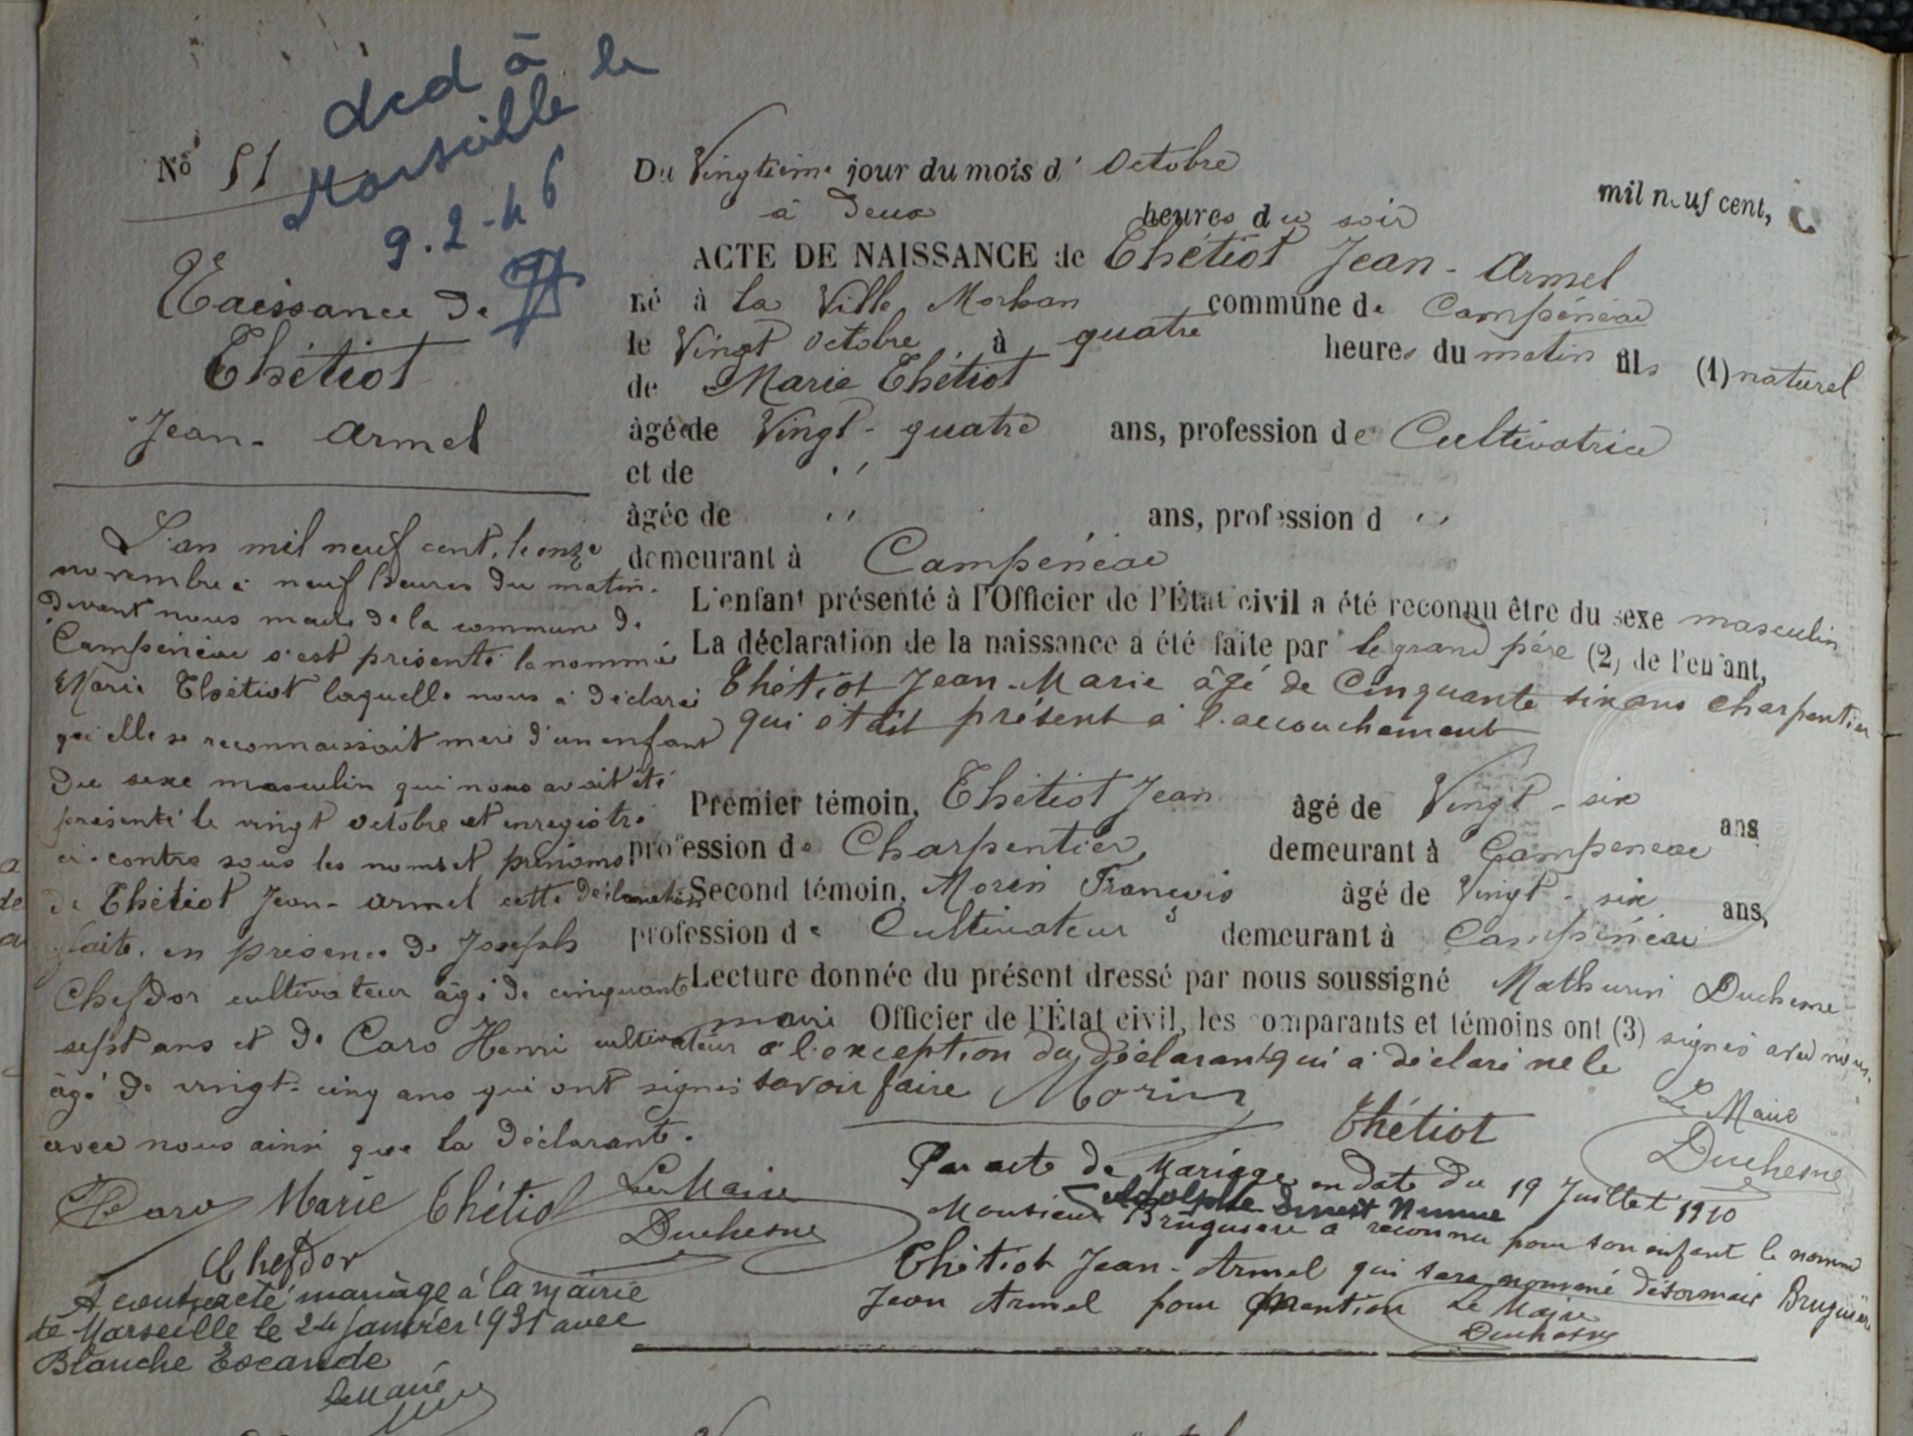 décd à
Marseille le
9-2-46
No 51
Naissance de
Thétiot
Jean-Armel
L'an mil neuf cent, le onze
novembre à neuf heures du matin.
devant nous maire de la commune de
Campénéac s'est présenté la nommée
Marie Thétiot laquelle nous a déclaré
qu'elle se reconnaissait mère d'un enfant
du sexe masculin qui nous avait été
présenté le vingt octobre et enregistré
ci-contre sous les noms et prénoms
de Thétiot Jean-Armel cette déclaration
faite en présence de Joseph
Chefdor cultivateur âgé de cinquante
sept ans et de Caro Henri cultivateur
âgé de vingt-cinq ans qui ont signé
avec nous ainsi que la déclarante.
Caro Marie Thétiot Le Maire
Duchesne
Chefdor
A contracté mariage à la mairie
de Marseille le 24 janvier 1931 avec
Blanche Escande
Le Maire
Du Vingtième jour du mois d' Octobre mil neuf cent,
à deux heures du soir
ACTE DE NAISSANCE de Thétiot Jean-Armel
né à la Ville Morhan commune de Campénéac
le Vingt Octobre à quatre heures du matin fils (1) naturel
de Marie Thétiot
âgée de Vingt-quatre ans, profession de Cultivatrice
et de ''
âgée de '' ans, profession d ''
demeurant à Campénéac
L'enfant présenté à l'Officier de l'État civil a été reconnu être du sexe masculin
La déclaration de la naissance a été faite par le grand père (2) de l'enfant,
Thétiot Jean-Marie âgé de Cinquante six ans charpentier
qui était présent à l'accouchement
Premier témoin, Thétiot Jean âgé de Vingt-six ans
profession de Charpentier, demeurant à Campénéac
Second témoin, Morin François âgé de Vingt-six ans,
profession de Cultivateur demeurant à Campénéac
Lecture donnée du présent dressé par nous soussigné Mathurin Duchesne
maire Officier de l'État civil, les comparants et témoins ont (3) signé avec nous.
à l'exception du déclarant qui a déclaré ne le
savoir faire Morin
Thétiot
Le Maire
Duchesne
Par acte de Mariage en date du 19 Juillet 1910
Adolphe Ernest
Monsieur Bruguière a reconnu pour son enfant le nommé
Thétiot Jean-Armel qui sera nommé désormais Bruguière
Jean Armel pour mention Le Maire
Duchesne